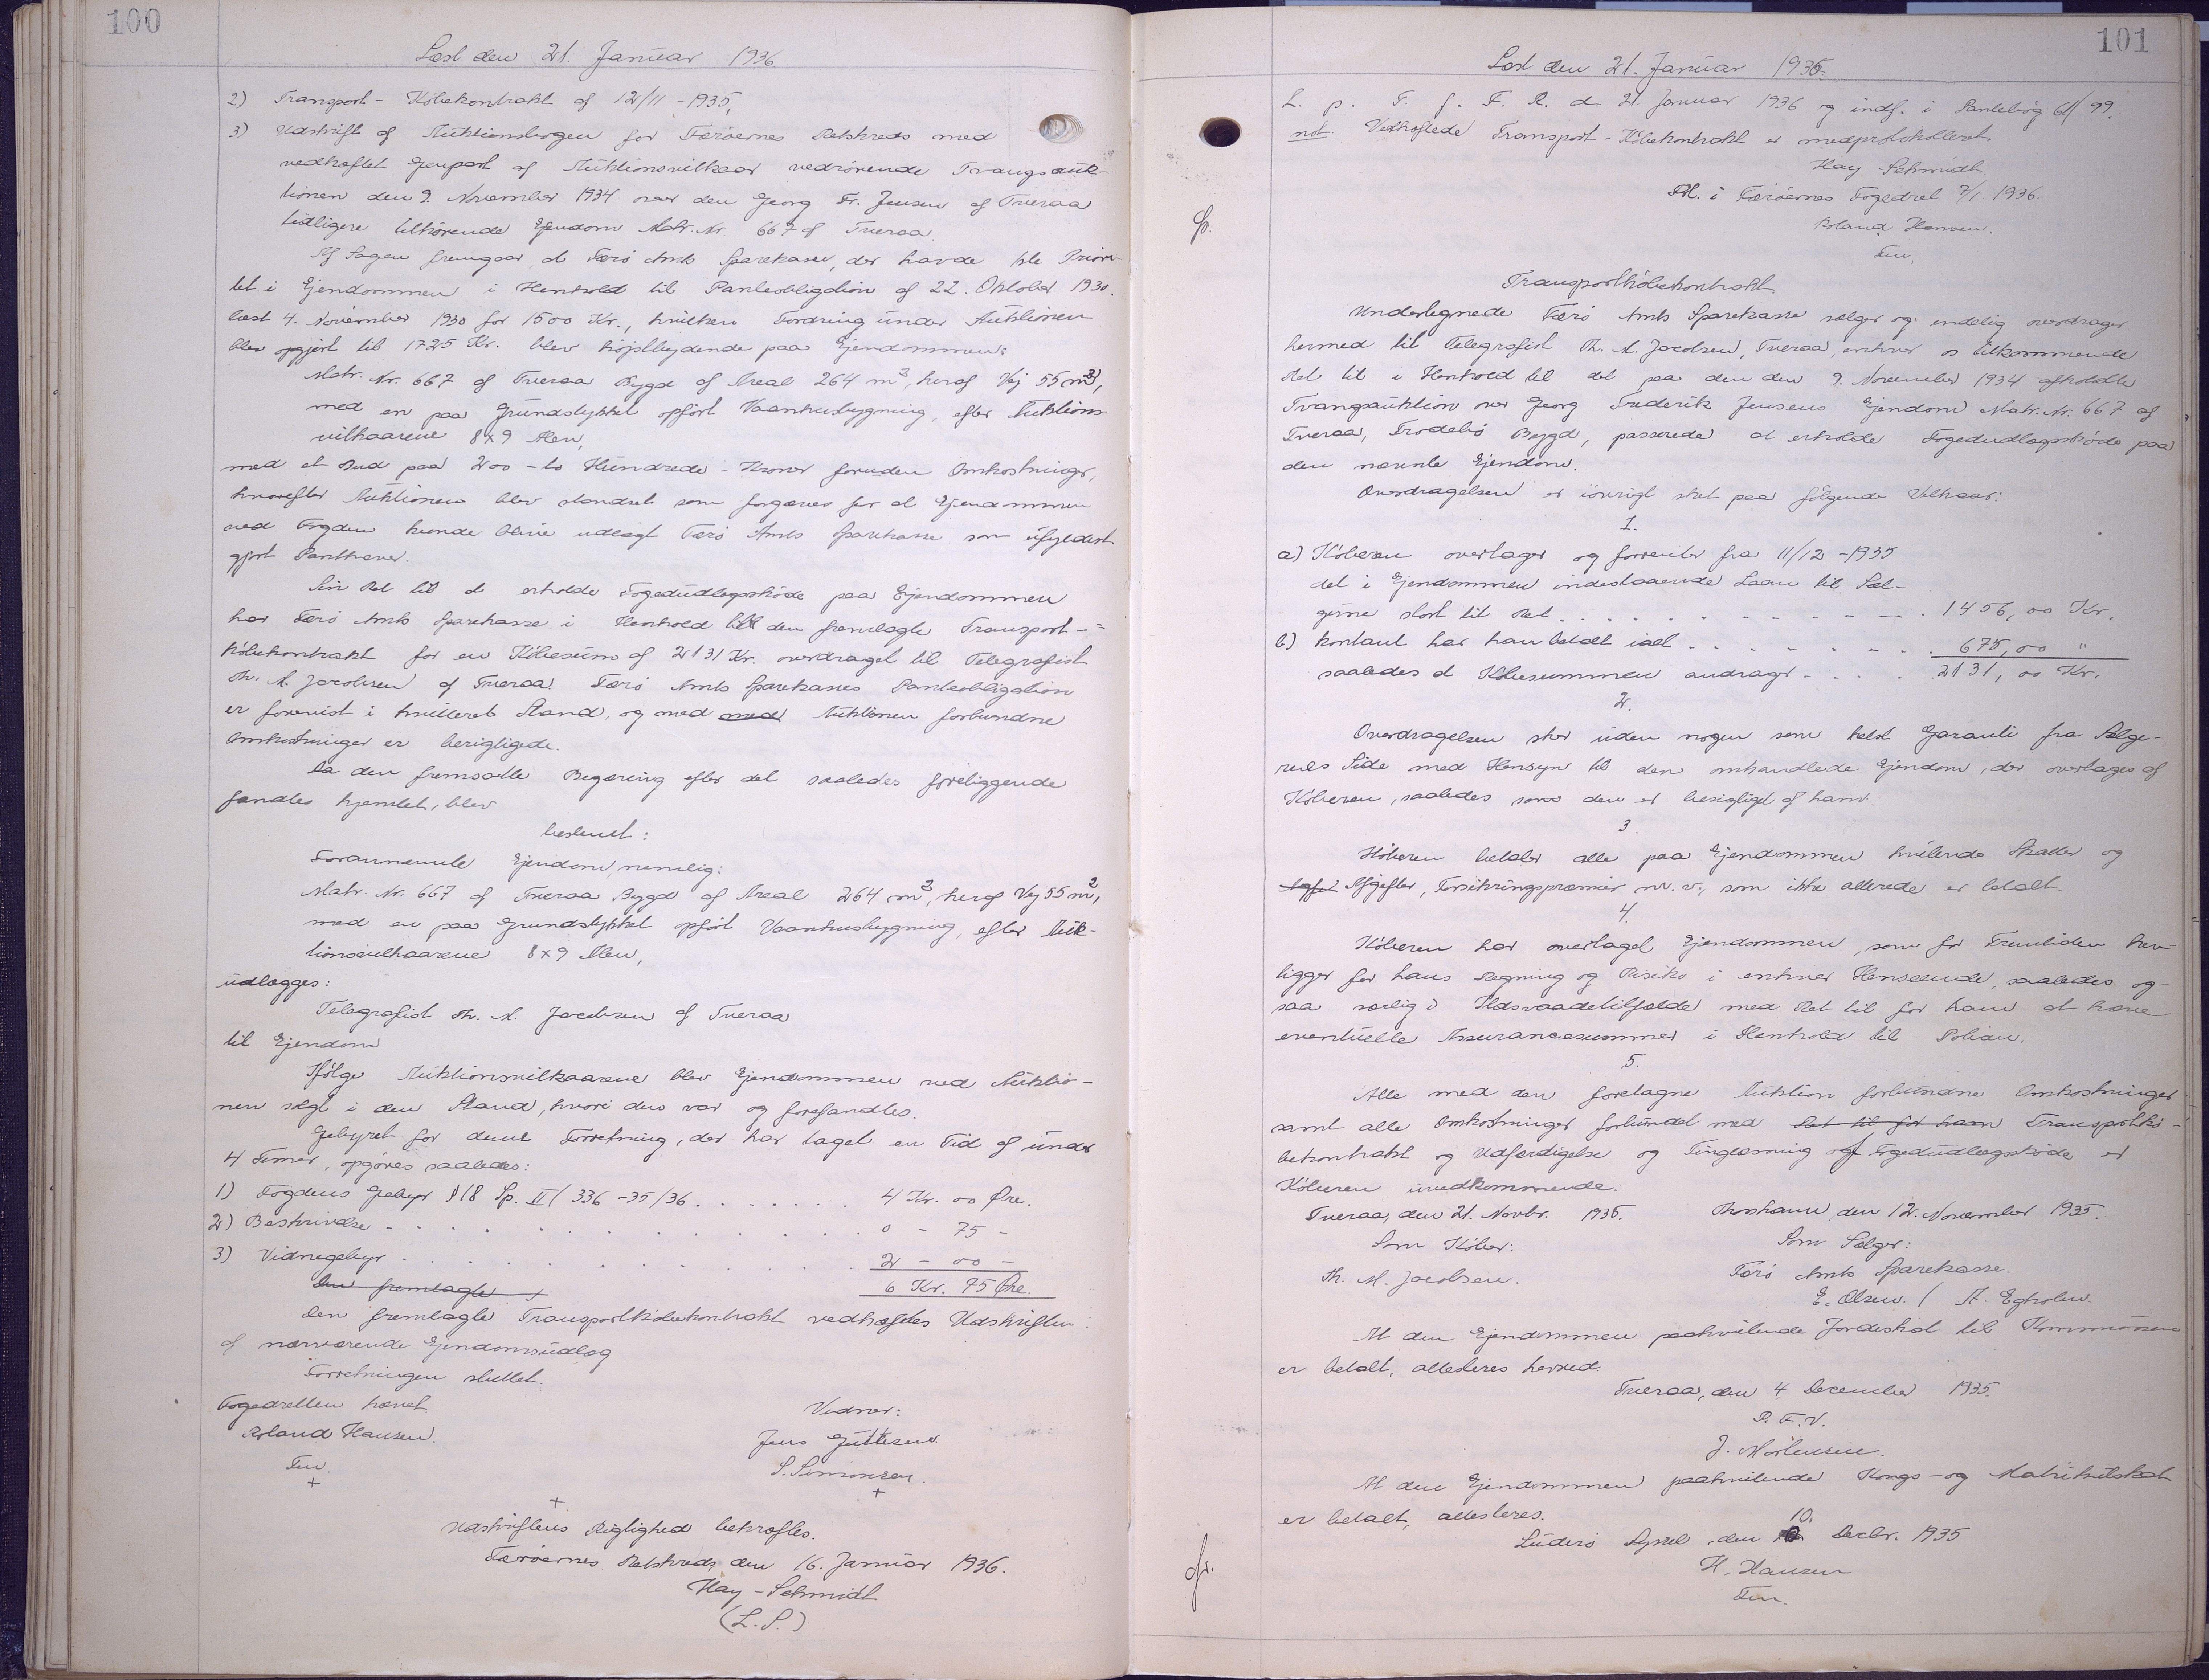 100
Læst den 21. Januar 1936
2) Transport-Købekontrakt af 12/11-1935,
3) Udskrift af Auktionsbogen for Færøernes Retskreds med
vedhæftet Genpart af Auktionsvilkaar vedrørende Tvangsauk-
tionen den 9. November 1934 over den Georg Fr. Jensen af Tveraa
tidligere tilhørende Ejendom Matr. Nr. 667 af Tveraa.
Af Sagen fremgaar, at Færø Amts Sparekasse, der havde 1ste Priori-
tet i Ejendommen i Henhold til Panteobligation af 22. Oktober 1930.
læst 4. November 1930 for 1500 Kr., hvilken Fordring under Auktionen
blev opgjort til 1725 Kr. blev højstbydende paa Ejendommen:
Matr. Nr. 667 af Tveraa Bygd af Areal 264 m², heraf Vej 55 m²,
med en paa Grundstykket opført Vaanhusbygning, efter Auktions-
vilkaarene 8x9 Alen,
med et Bud paa 200 - to Hundrede - Kroner foruden Omkostninger,
hvorefter Auktionen blev standset som forgæves for at Ejendommen
ved Fogden kunde blive udlagt Færø Amts Sparekasse som ufyldest-
gjort Panthaver.
Sin Ret til at erholde Fogedudlægsskøde paa Ejendommen
har Færø Amts Sparekasse i Henhold til den fremlagte Transport-
købekontrakt for en Købesum af 2131 Kr. overdraget til Telegrafist
Th. M. Jacobsen af Tveraa. Færø Amts Sparekasses Panteobligation
er forevist i kvitteret Stand, og med med Auktionen forbundne
Omkostninger er berigtigede.
Da den fremsatte Begæring efter det saaledes foreliggende
fandtes hjemlet, blev
bestemt:
Forannævnte Ejendom, nemlig:
Matr. Nr. 667 af Tveraa Bygd af Areal 264 m², heraf Vej 55 m²,
med en paa Grundstykket opført Vaanhusbygning, efter Auk-
tionsvilkaarene 8x9 Alen,
udlægges:
Telegrafist Th. M. Jacobsen af Tveraa
til Ejendom
Ifølge Auktionsvilkaarene blev Ejendommen ved Auktio-
nen solgt i den Stand, hvori den var og forefandtes.
Gebyret for denne Forretning, der har taget en Tid af under
4 Timer, opgøres saaledes:
1) Fogdens Gebyr § 18 Sp. II/336-35/36 . . . . . . . 4 Kr. 00 Øre.
2) Beskrivelse - . . . . . . . . . . . . . 0 - 75 -
3) Vidnegebyr . . . . . . . . . . . . . 2 - 00 -
Den fremlagte 6 Kr. 75 Øre.
Den fremlagte Transportkøbekontrakt vedhæftes Udskriften
af nærværende Ejendomsudlæg
Forretningen sluttet.
Fogedretten hævet. Vidner:
Roland Hansen. Jens Guttesen.
Fm. S. Simonsen.
+ +
+
Udskriftens Rigtighed bekræftes.
Færøernes Retskreds, den 16. Januar 1936.
Hay-Schmidt
(L.S.)
101
Læst den 21. Januar 1936.
L. p. T. f. F. R. d. 21. Januar 1936 og indf. i Pantebog 61/99.
not Vedhæftede Transport-Købekontrakt er medprotokolleret
Hay Schmidt.
Rl. i Færøernes Fogedret 7/1 1936.
Roland Hansen.
Fm.
Transportkøbekontrakt
Undertegnede Færø Amts Sparekasse sælger og endelig overdrager
hermed til Telegrafist Th. M. Jacobsen, Tveraa, enhver os tilkommende
Ret til i Henhold til det paa den den 9. November 1934 afholdte
Tvangsauktion over Georg Frederik Jensens Ejendom Matr. Nr. 667 af
Tveraa, Frodebø Bygd, passerede at erholde Fogedudlægsskøde paa
den nævnte Ejendom.
Overdragelsen er iøvrigt sket paa følgende Vilkaar:
1.
a) Køberen overtager og forrenter fra 11/12-1935
det i Ejendommen indestaaende Laan til Sæl-
gerne stort til Rest . . . . . . . . . . . 1456,00 Kr.
b) kontant har han betalt ialt . . . . . . . . 675,00 "
saaledes at Købesummen andrager - . . . 2131,00 Kr.
2.
Overdragelsen sker uden nogen som helst Garanti fra Sælge-
rens Side med Hensyn til den omhandlede Ejendom, der overtages af
Køberen, saaledes som den er besigtiget af ham.
3.
Køberen betaler alle paa Ejendommen hvilende Skatter og
Afgifter, Forsikringspræmier m.v., som ikke allerede er betalt.
4.
Køberen har overtaget Ejendommen, som for Fremtiden hen-
ligger for hans Regning og Risiko i enhver Henseende, saaledes og-
saa særlig i Ildsvaadetilfælde med Ret til for ham at hæve
eventuelle Assurancesummer i Henhold til Policen.
5.
Alle med den foretagne Auktion forbundne Omkostninger
samt alle Omkostninger forbundet med Ret til for ham Transportkø-
bekontrakt og Udfærdigelse og Tinglæsning af Fogedudlægsskøde er
Køberen uvedkommende.
Tveraa, den 21. Novbr. 1935. Thorshavn, den 12. November 1935.
Som Køber: Som Sælger:
Th. M. Jacobsen. Færø Amts Sparekasse.
E. Olsen. / A. Egholm.
At den Ejendommen paahvilende Jordeskat til Kommunen
er betalt, attesteres herved.
Tveraa, den 4 December 1935.
P. F. V.
J. Mortensen.
At den Ejendommen paahvilende Kongs- og Matrikulskat
er betalt, attesteres.
Suderø Syssel, den 10. Decbr. 1935
H. Hansen
Fm.